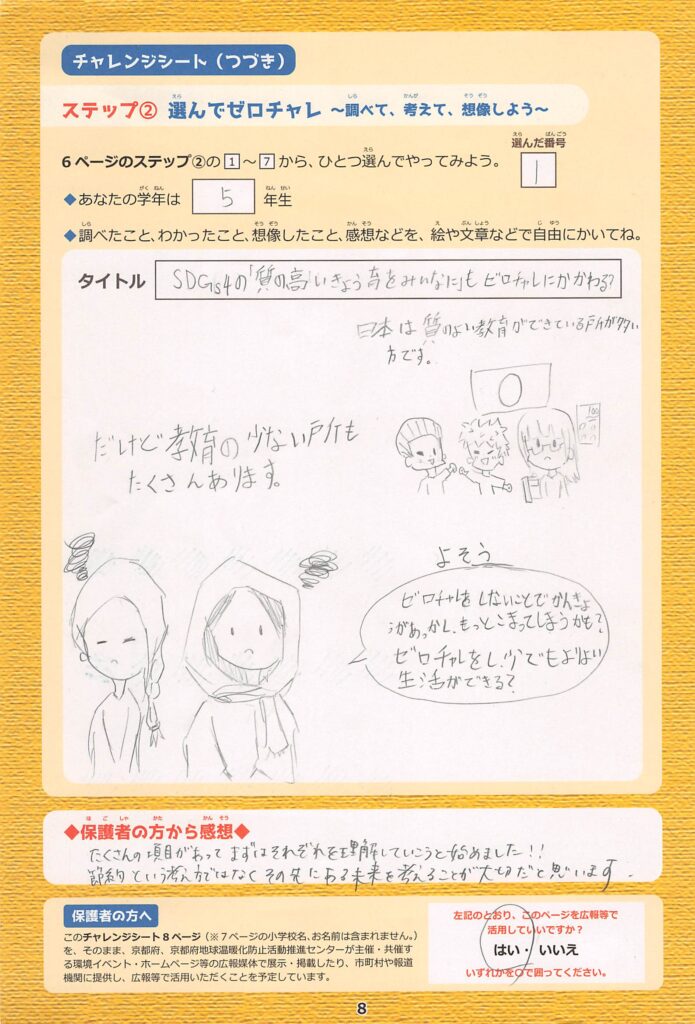 チャレンジシート（つづき）
ステップ② 選んでゼロチャレ ～調べて、考えて、想像しよう～
6ページのステップ②の1～7から、ひとつ選んでやってみよう。
選んだ番号
1
◆あなたの学年は 5 年生
◆調べたこと、わかったこと、想像したこと、感想などを、絵や文章などで自由にかいてね。
タイトル SDGs4の「質の高」いきょう育をみんなに」も ゼロチャレにかかわる?
日本は質のよい教育ができている所が多い
方です。
100
だけど教育の少ない所も
たくさんあります。
よそう
ゼロチャレをしないことでかんきょ
うがあっかし、もっとこまってしまうかも?
ゼロチャレをし、少しでもよりよい
生活ができる?
◆保護者の方から感想◆
たくさんの項目があって まずはそれぞれを理解していこうと始めました!!
節約という考え方ではなく その先にある未来を考えることが大切だと思います.
保護者の方へ
このチャレンジシート8ページ（※7ページの小学校名、お名前は含まれません。）
を、そのまま、京都府、京都府地球温暖化防止活動推進センターが主催・共催す
る環境イベント・ホームページ等の広報媒体で展示・掲載したり、市町村や報道
機関に提供し、広報等で活用いただくことを予定しています。
左記のとおり、このページを広報等で
活用していいですか？
はい・いいえ
いずれかを○で囲ってください。
8